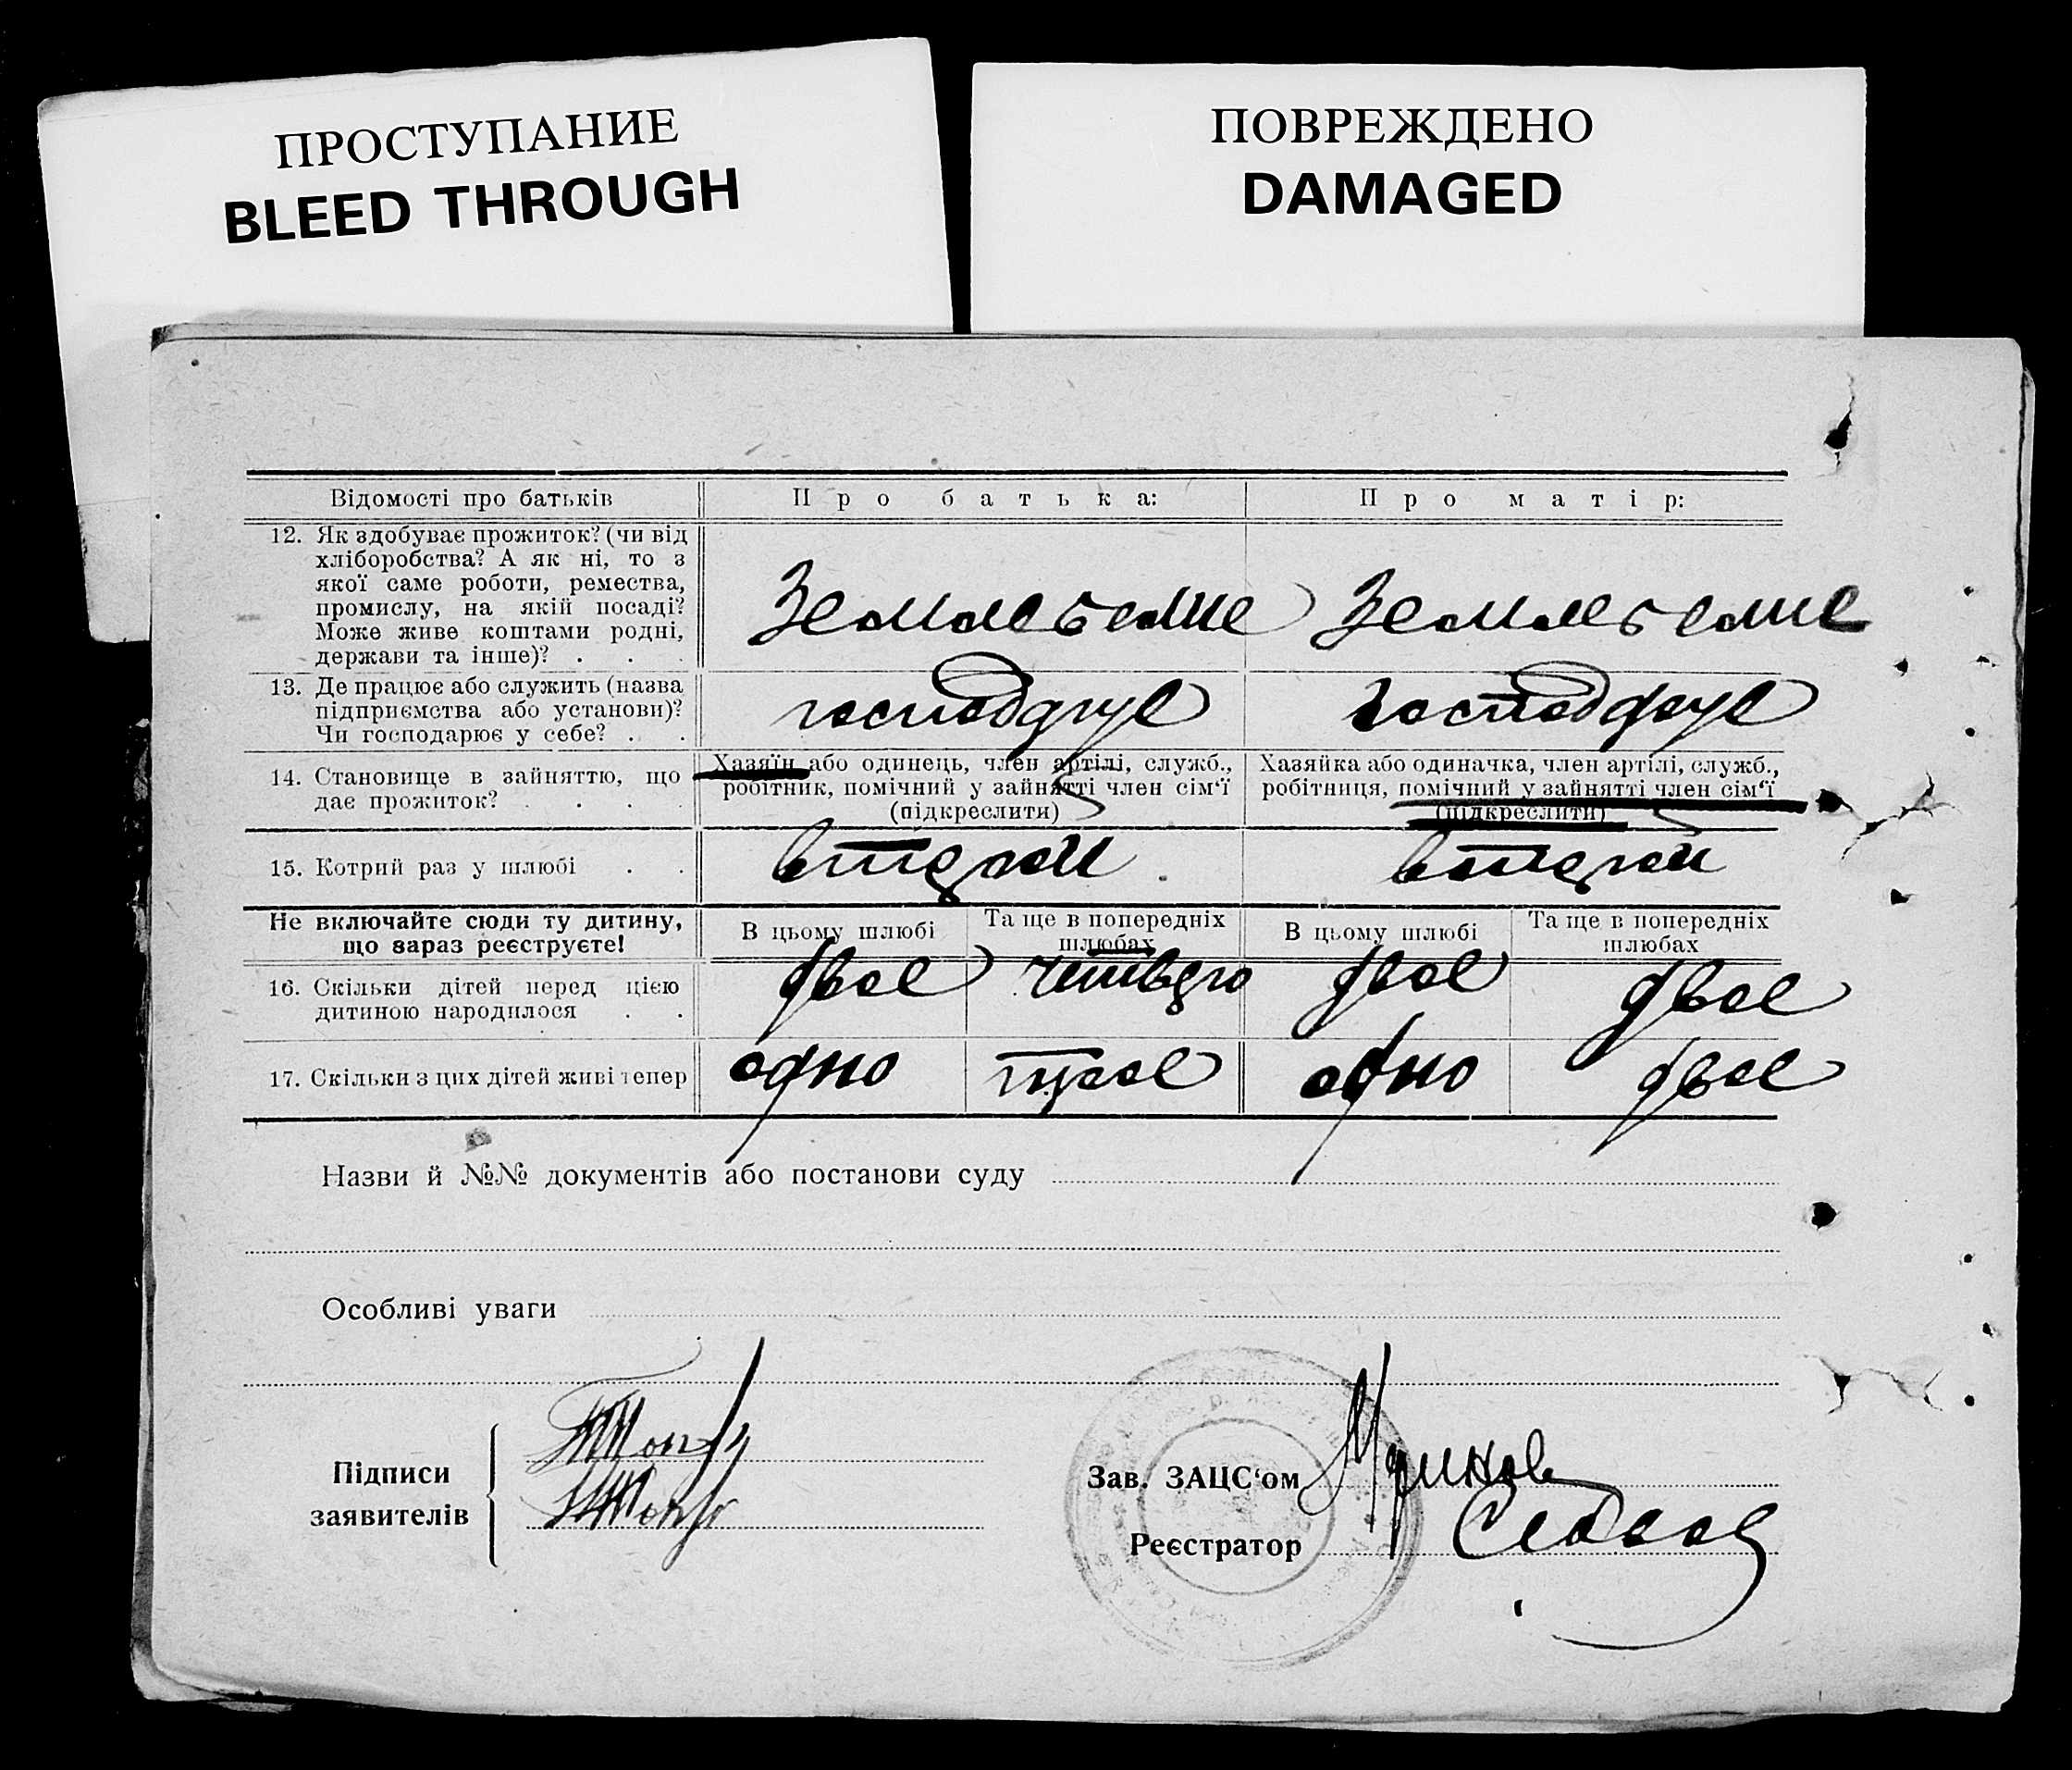 ПРОСТУПАНИЕ
BLEED THROUGH
ПОВРЕЖДЕНО
DAMAGED
Відомості про батьків
Про батька:
Про матір:
12. Як здобуває прожиток? (чи від
хліборобства? А як ні, то з
якої саме роботи, ремества,
промислу, на якій посаді?
Може живе коштами родні,
держави та інше)? . . .
Земледелие
Земледелие
13. Де працює або служить (назва
підприємства або установи)?
Чи господарює у себе? . .
14. Становище в зайняттю, що
дає прожиток? . . . .
Хазяїн або одинець, член артілі, служб.,
робітник, помічний у зайнятті член сім'ї
(підкреслити)
Хазяйка або одиначка, член артілі, служб.,
робітниця, помічний у зайнятті член сім'ї
(підкреслити)
15. Котрий раз у шлюбі . .
второй
второй
Не включайте сюди ту дитину,
що зараз реєструєте!
В цьому шлюбі
Та ще в попередніх
шлюбах
В цьому шлюбі
Та ще в попередніх
шлюбах
16. Скільки дітей перед цією
дитиною народилося . .
двое
четверо
двое
двое
17. Скільки з цих дітей живі тепер
одно
трое
одно
двое
Назви й №№ документів або постанови суду
Особливі уваги
Підписи
заявителів
Зав. ЗАЦС'ом
Реєстратор